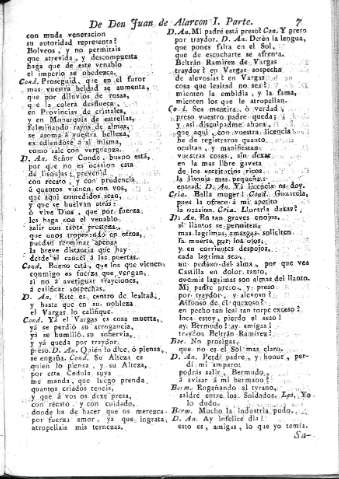 De Don Juan de Alarcon I. Parte. 7
con muda veneracion
su autoridad representa?
Bolveos, y no permitais
que atrevida, y descompuesta
haga que de este venablo
el imperio se obedezca.
Cond. Proseguid, que en el furor
mas vuestra beldad se aumenta,
que por diluvios de rosas,
que la colera desfleca,
en Provincias de cristales,
y en Monarquia de estrellas,
fulminando rayos de almas,
se asoma à vuestra belleza,
como salir con verguenza.
D. An. Señor Conde, bueno està,
por que no es ocasion esta
de lisonjas; prevenid
con recato, y con prudencia
à quantos vienen con vos,
que aqui enmedio sean,
y que se buelvan atràs:
ò vive Dios, que por fuerza
les haga con el venablo
salir con tanta presteza,
que unos tropezando en otros,
puedan terminar apenas
la breve distancia que hay
desde el cancel à las puertas.
Cond. Bueno està, que los que vienen
conmigo es fuerza que vengan,
si no à averiguar trayciones,
à calificar sospechas.
D. An. Este es centro de lealtad,
y hasta que en su nobleza
el Vargas lo califique.
Cond. Yà el Vargas en casa muerta,
yà se perdiò su arrogancia,
yà se humillò su sobervia,
y yà queda por traydor.
preso. D. An. Quien lo dice, ò piensa,
se engaña. Cond. Su Alteza es
quien lo piensa, y su Alteza,
por esta Cedula suya
me manda, que luego prenda
quantos criados teneis,
y que à vos os dexe presa,
con recato, y con cuidado,
donde ha de hacer que os merezca
por fuerza amor, ya que, ingrata,
atropellais mis ternezas.
D. An. Mi padre està preso? Con. Y preso
por traydor. D. An. Deten la lengua,
que pones falta en el Sol,
que de escucharte se afrenta.
Beltràn Ramirez de Vargas
traydor? en Vargas sospecha
de alevosìas? en Vargas
cosa que lealtad no sea?
mienten la embidia, y la fama,
mienten los que le atropellan.
Co. Sea mentira, ò verdad,
preso vuestro padre queda;
y asi disculpadme ahora,
que aqui, con vuestra licencia
he de registraros quanto
ocultan, y manifiestan
vuestras cosas, sin dexar
en la mas libre gaveta
de los escritorios ricos
la lisonja mas pequeña:
entrad. D. An. Yo licencia no doy.
Cria. Bella muger! Cond. Graciosa,
pues la ofrezco el alma apetito
la razon. Cria. Llorarla dexas?
D. An. En tan graves enojos,
al llanto se permiten
mas lagrimas, amargas soliciten
la muerte, por los ojos,
y en corrientes despojos,
cada lagrima sea,
un pedazo del alma, por que vea
Castilla en dolor tanto,
que mis lagrimas son almas del llanto.
Mi padre preso, y preso
por traydor, y alevoso?
Alfonso de èl quexoso?
en pecho tan leal tan torpe exceso?
loca estoy, pierdo el seso!
ay, Bermudo! ay, amigas!
traydor Beltràn Ramirez?
Ber. No prosigas,
que no es el Sol mas claro.
D. An. Perdì padre, y honor, perdì
mi amparo!
podràs salir, Bermudo,
à avisar à mi hermano?
Berm. Rogeñando al tyrano,
saldrè entre los Soldados. Los, Yo
lo dudo.
Berm. Mucho la industria pudo.
D. An. Ay infelice dia!
esto es, amigas, lo que yo temia.
Su-